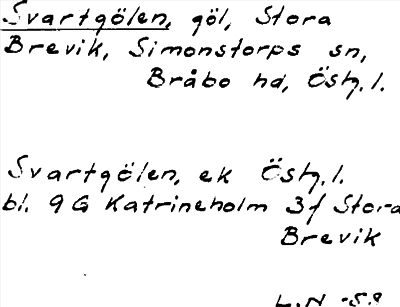 Svartgölen, göl, Stora
Brevik, Simonstorps sn,
Bråbo hd, Östg. l.
Svartgölen, ek Östg. l.
bl. 9G Katrineholm 3f Stora
Brevik
L.N